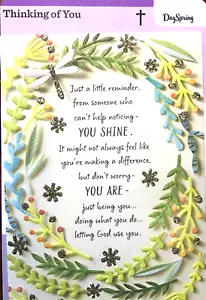 Thinking of You
DaySpring
Just a little reminder,
from someone who
can't help noticing -
YOU SHINE.
It might not always feel like
you're making a difference,
but don't worry-
YOU ARE -
just being you...
doing what you do...
letting God use you.